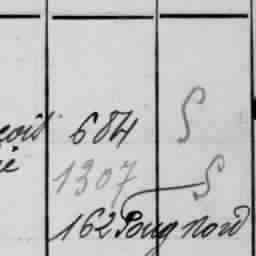 684 S
1307 S
162 Poug Nord